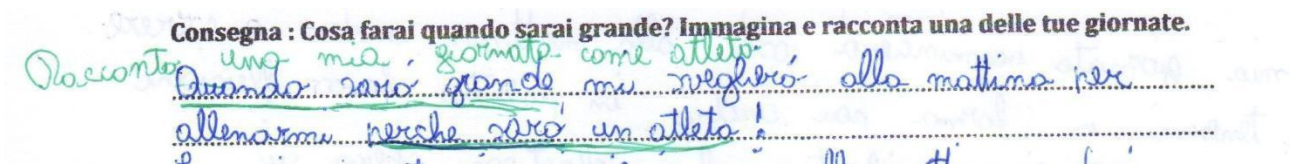 Consegna : Cosa farai quando sarai grande? Immagina e racconta una delle tue giornate.
Racconto una mia giornata come atleta.
Quando sarò grande mi sveglierò alla mattina per
allenarmi perche sarò un atleta !